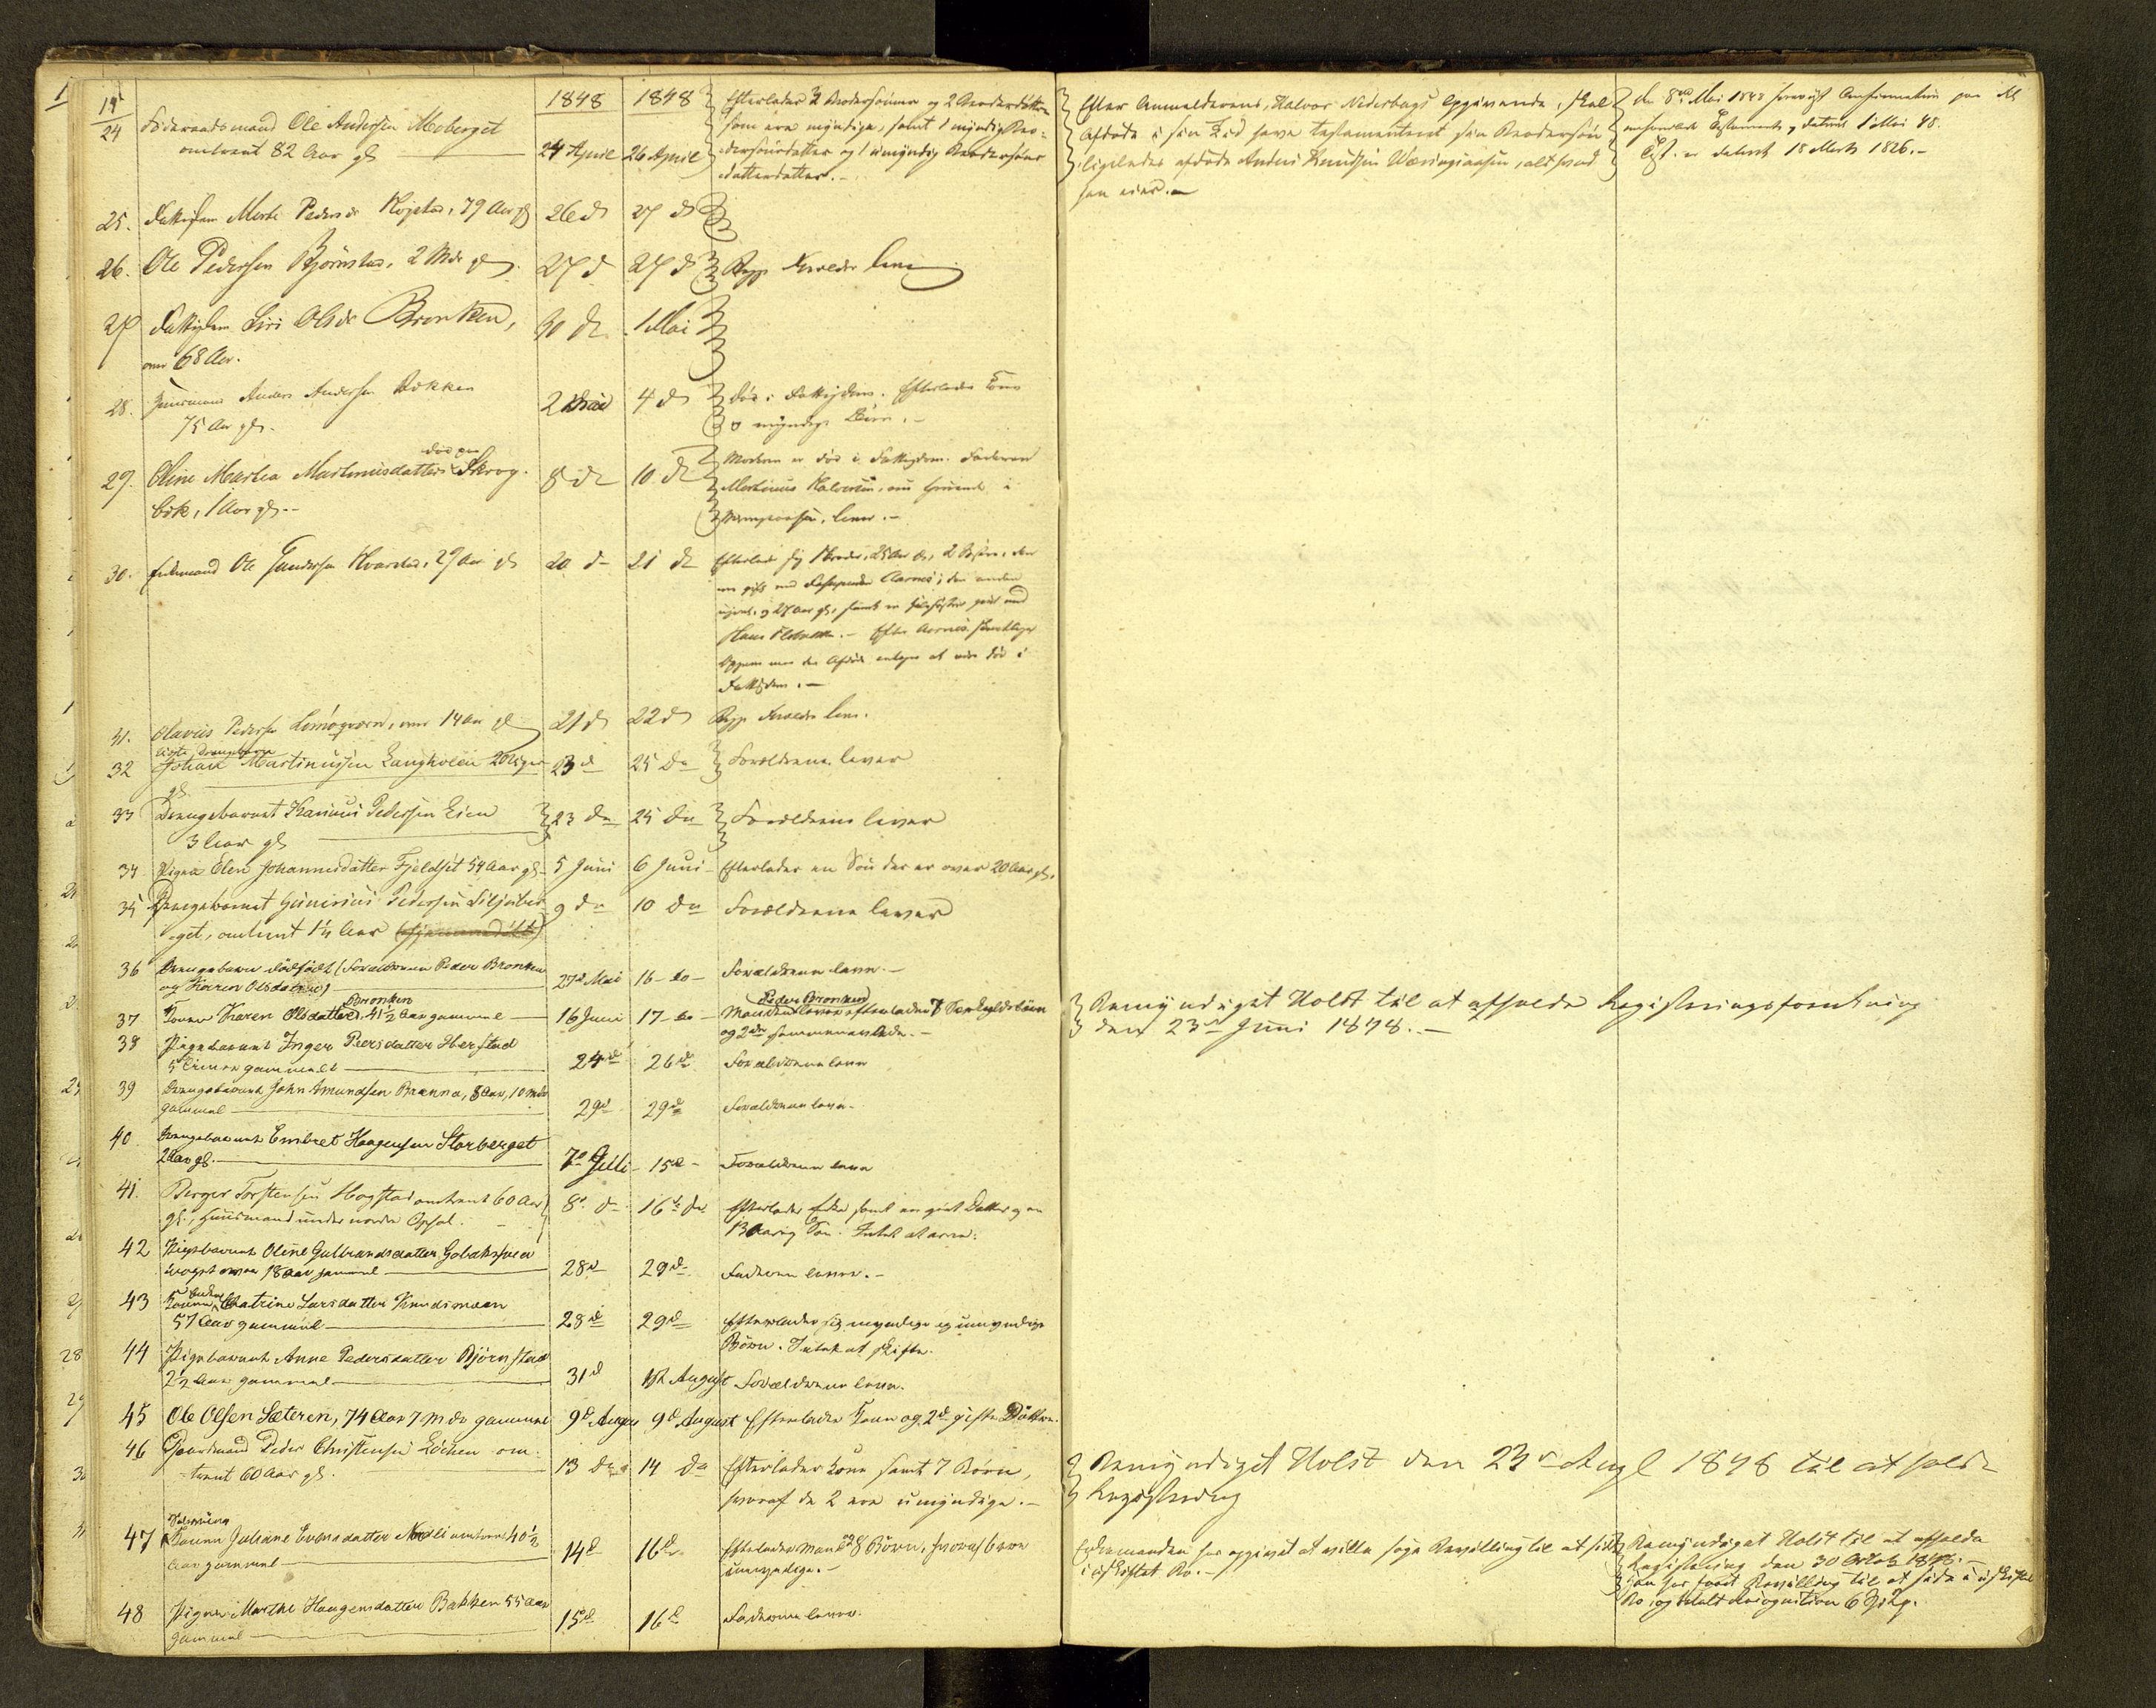 1848 1848
24 Föderaadsmand Ole Andersen Moberget
omtrent 82 Aar gl 24 April 26 April
Efterlader 2 Brodersönner og 2 Broderdöttre
som ere myndige, samt 1 myndig Bro-
dersönsdatter og 1 umyndig Brodersöns
datterdatter.-
Efter Anmelderens, Halvor Nederbags Opgivende, skal
Afdøde i sin Tid have testamenteret sin Brodersøn
ligeledes afdøde Anders Knudsen alt hvad
han eier.-
den 8de Mai 1848 Confirmation paa det
Testamente, dateret 1 Mai 48.
Test. er dateret 18 Marts 1826.-
25. Marte Pedersdr 79 Aar gl 26 d 27 d
26. Ole Pedersen Björnstad, 2 Mdr gl 27 d 27 d Begge Forældre leve
27 Fattiglem Siri Olsdr Bronken, 30 d 1 Mai
68 Aar.
28. Huusmand Anders Andersen Bakken
75 Aar gl. 2 Mai 4 d död i Fattigdom. Efterlader Kone
o myndige Børn.-
död paa
29. Oline Marthea Martinusdatter Skrog-
bæk, 1 Aar gl.- 8 d 10 d
Moderen er död i Fattigdom. Faderen
Martinus Halvorsen, nu i
lever.-
30. Enkemand Ole Gundersen Kvarstad, 29 Aar gl 20 d 21 d
Efterlod sig 1 Broder, 25 Aar gl., 2 Søstre, den
ene gift med Aarnes; den anden
ugivt, og 27 Aar gl., samt en Halvsøster givt med
Hans. - Efter Aarnes skriftlige
Opgivende den Afdøde antages at være død i
Fattigdom.-
31. Olavus Pedersen 14 Aar gl 21 d 22 d Begge Forældre leve.
32 Johan Martinussen Langholen 20 Uger 23 d 25 da Forældrene lever
gl
33 Drengebarnet Karinus Pedersen Lien 23 da 25 da Forældrene lever
3 Aar gl
34 Pigen Elen Johannesdatter Fjeldset 54 Aar gl 5 Juni 6 Juni Efterlader en Sön der er over 20 Aar gl.
35 Drengebarnet Gunerius Pedersen Liljeber-
get, omtrent 1½ Aar 9 da 10 da Forældrene lever
36 Drengebarn dødfødt (Forældrene Peder Bronken
og Karen Olsdatter) 27d Mai 16 do Forældrene lever.-
Bronken
37 Konen Karen Olsdatter 41½ Aar gammel 16 Juni 17 do
Peder Bronken
Manden lever efterlader 7 Særkuldsbörn
og 2de sammenavlede.-
Bemyndiget Holst til at afholde Registreringsforretning
den 23de Juni 1848.-
38 Pigebarnet Inger Peersdatter Herstad
5 Timer gammelt 24d 26d Forældrene lever
39 Drengebarnet John Amundsen Brænna, 3 Aar, 10 Mdr
gammel 29d 29d Forældrene lever.
40 Drengebarnet Embret Haagensen Storberget
2 Aar gl. 7d Julli 15d Forældrene lever
41. Berger Torstensen Hogstad omtrent 60 Aar
gl., Huusmand under nordre Opsal. 8d d 16d da
Efterlader Enke samt en givt Datter og en
13 Aarig Sön. Intet at arve.
42 Pigebarnet Oline Gulbrandsdatter
noget over 18 Aar gammel 28d 29d Faderen lever.-
43 Konen Catrine Larsdatter Knudsmoen
57 Aar gammel 28d 29d Efterlader sig myndige og umyndige
Børn. Intet at skifte.
44 Pigebarnet Anne Pedersdatter Björnstad
2½ Aar gammel 31d 1st August Forældrene lever.
45 Ole Olsen Sæteren, 74 Aar 7 Mdr gammel 9d August 9d August Efterlader Kone og 2de gifte Døttre.
46 Gaardmand Peder Christensen Löchen om-
trent 60 Aar gl. 13 da 14 da Efterlader Kone samt 7 Børn,
hvoraf de 2 ere umyndige.-
Bemyndiget Holst den 23de Augl 1848 til at holde
Registrering
47 Konen Juliane Evensdatter Nordli omtrent 40½
Aar gammel 14d 16d Efterlader Mand og 8 Børn, hvoraf 6 ere
umyndige.-
Enkemanden har opgivet at ville søge Bevilling til at sidde
i uskiftet Bo.-
Bemyndiget Holst til at afholde
Registrering den 30 Octob 1848.-
han har faaet Bevilling til at sidde i uskiftet
Bo og betalt Recognition 6
48 Pigen Marthe Haagensdatter Bakken 55 Aar
gammel 15d 16d Faderen lever.